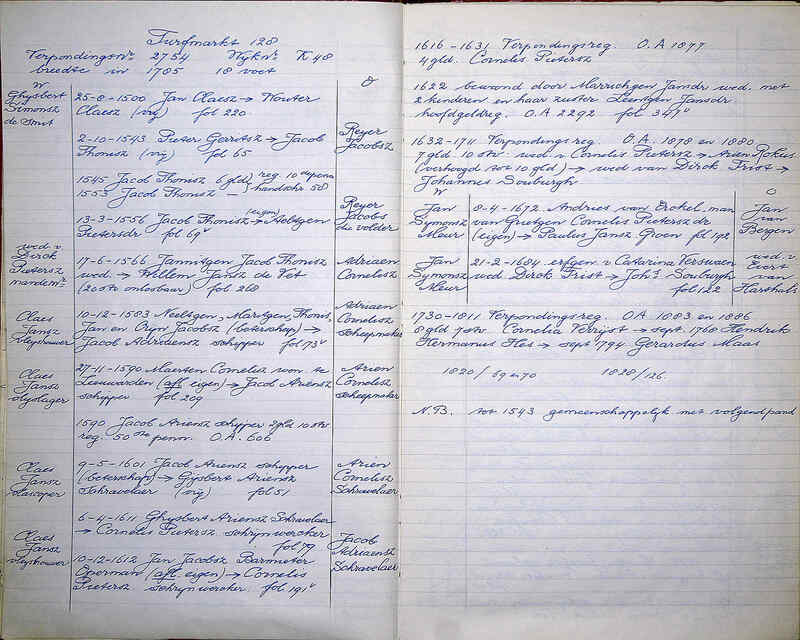 Turfmarkt 128
Verpondingsnr. 2754 Wijknr. K 48
breedte in 1785 18 voet
W
O
Ghijsbert
Simonsz
de Smit
25-8-1500 Jan Claesz → Wouter
Claesz (vrij) fol 220
2-10-1543 Pieter Gerritsz → Jacob
Thonisz (vrij) fol 65
Reyer
Jacobsz
1545 Jacob Thonisz 6 gld reg. 10e
1553 Jacob Thonisz — handschr 58
13-3-1556 Jacob Thonisz (eigen) → Aeltgen
Pietersdr fol 69v
Reyer
Jacobs
de volder
wed. v
Dirck
Pietersz
17-6-1566 Jannitgen Jacob Thonisz
wed. → Willem Jansz de Vet
(20 stv onlosbaar) fol 268
Adriaen
Cornelisz
Claes
Jansz
vleyshouwer
10-12-1583 Neeltgen, Maritgen, Thonis,
Jan en Oryn Jacobsz (beterschap) →
Jacob Adriaensz schipper fol 73v
Adriaen
Cornelisz
scheepmaker
Claes
Jansz
olyslager
27-11-1590 Maerten Cornelisz won te
Leeuwarden (afl. eigen) → Jacob Ariensz
schipper fol 209
Arien
Cornelisz
scheepmaker
1590 Jacob Ariensz schipper 2 gld 10 stv
reg. 50ste penn. O.A. 606
Claes
Jansz
9-5-1601 Jacob Ariensz schipper
(beterschap) → Gijsbert Ariensz
Schravelaer (vrij) fol 51
Arien
Cornelisz
Schravelaer
Claes
Jansz
vleyshouwer
6-4-1611 Ghysbert Ariensz Schravelaer
→ Cornelis Pietersz schrijnwercker
fol 79
10-12-1612 Jan Jacobsz Barmeter
Opperman (afl. eigen) → Cornelis
Pietersz schrijnwercker fol 191v
Jacob
Adriaensz
Schravelaer
1616-1631 Verpondingsreg. O.A 1877
4 gld. Cornelis Pietersz
1622 bewoond door Marrichgen Jansdr wed. met
2 kinderen en haar zuster Leentgen Jansdr
hoofdgeldreg. O.A 2292 fol 347v
1632-1711 Verpondingsreg. O.A. 1878 en 1880
7 gld 10 stv wed. v Cornelis Pietersz → Arien Rokus
(verhoogd tot 10 gld) → wed van Dirck Frist →
Johannes Souburgh
W
O
Jan
Symonsz
Meur
8-4-1672 Andries van Erckel man
van Grietgen Cornelis Pietersz dr
(eigen) → Paulus Jansz Groen fol 192
Jan
van
Bergen
Jan
Symonsz
Meur
21-2-1684 erfgen. v Catarina Verswaen
wed. Dirck Frist → Joh.s Souburgh
fol 122
wed. v
Evert
van
1730-1811 Verpondingsreg. OA 1883 en 1886
8 gld 7 stv. Cornelia Verrijst → sept. 1768 Hendrik
Hermanus Hes → sept 1794 Gerardus Maas
1820/69 en 70 1828/126.
N.B. tot 1543 gemeenschappelijk met volgend pand